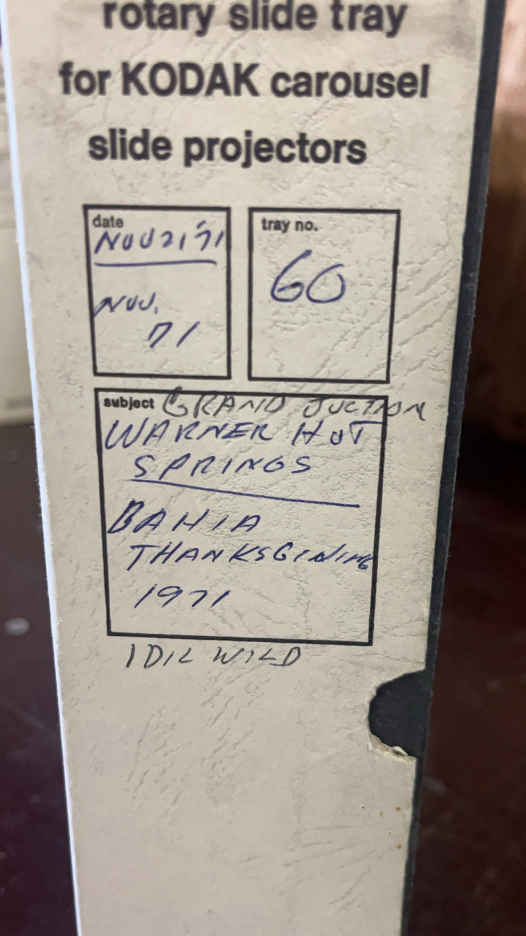 rotary slide tray
for KODAK carousel
slide projectors
date
NOV 21 '71
NOV.
71
tray no.
60
subject GRAND JUCTION
WARNER HOT
SPRINGS
BAHIA
THANKSGIVING
1971
IDIL WILD